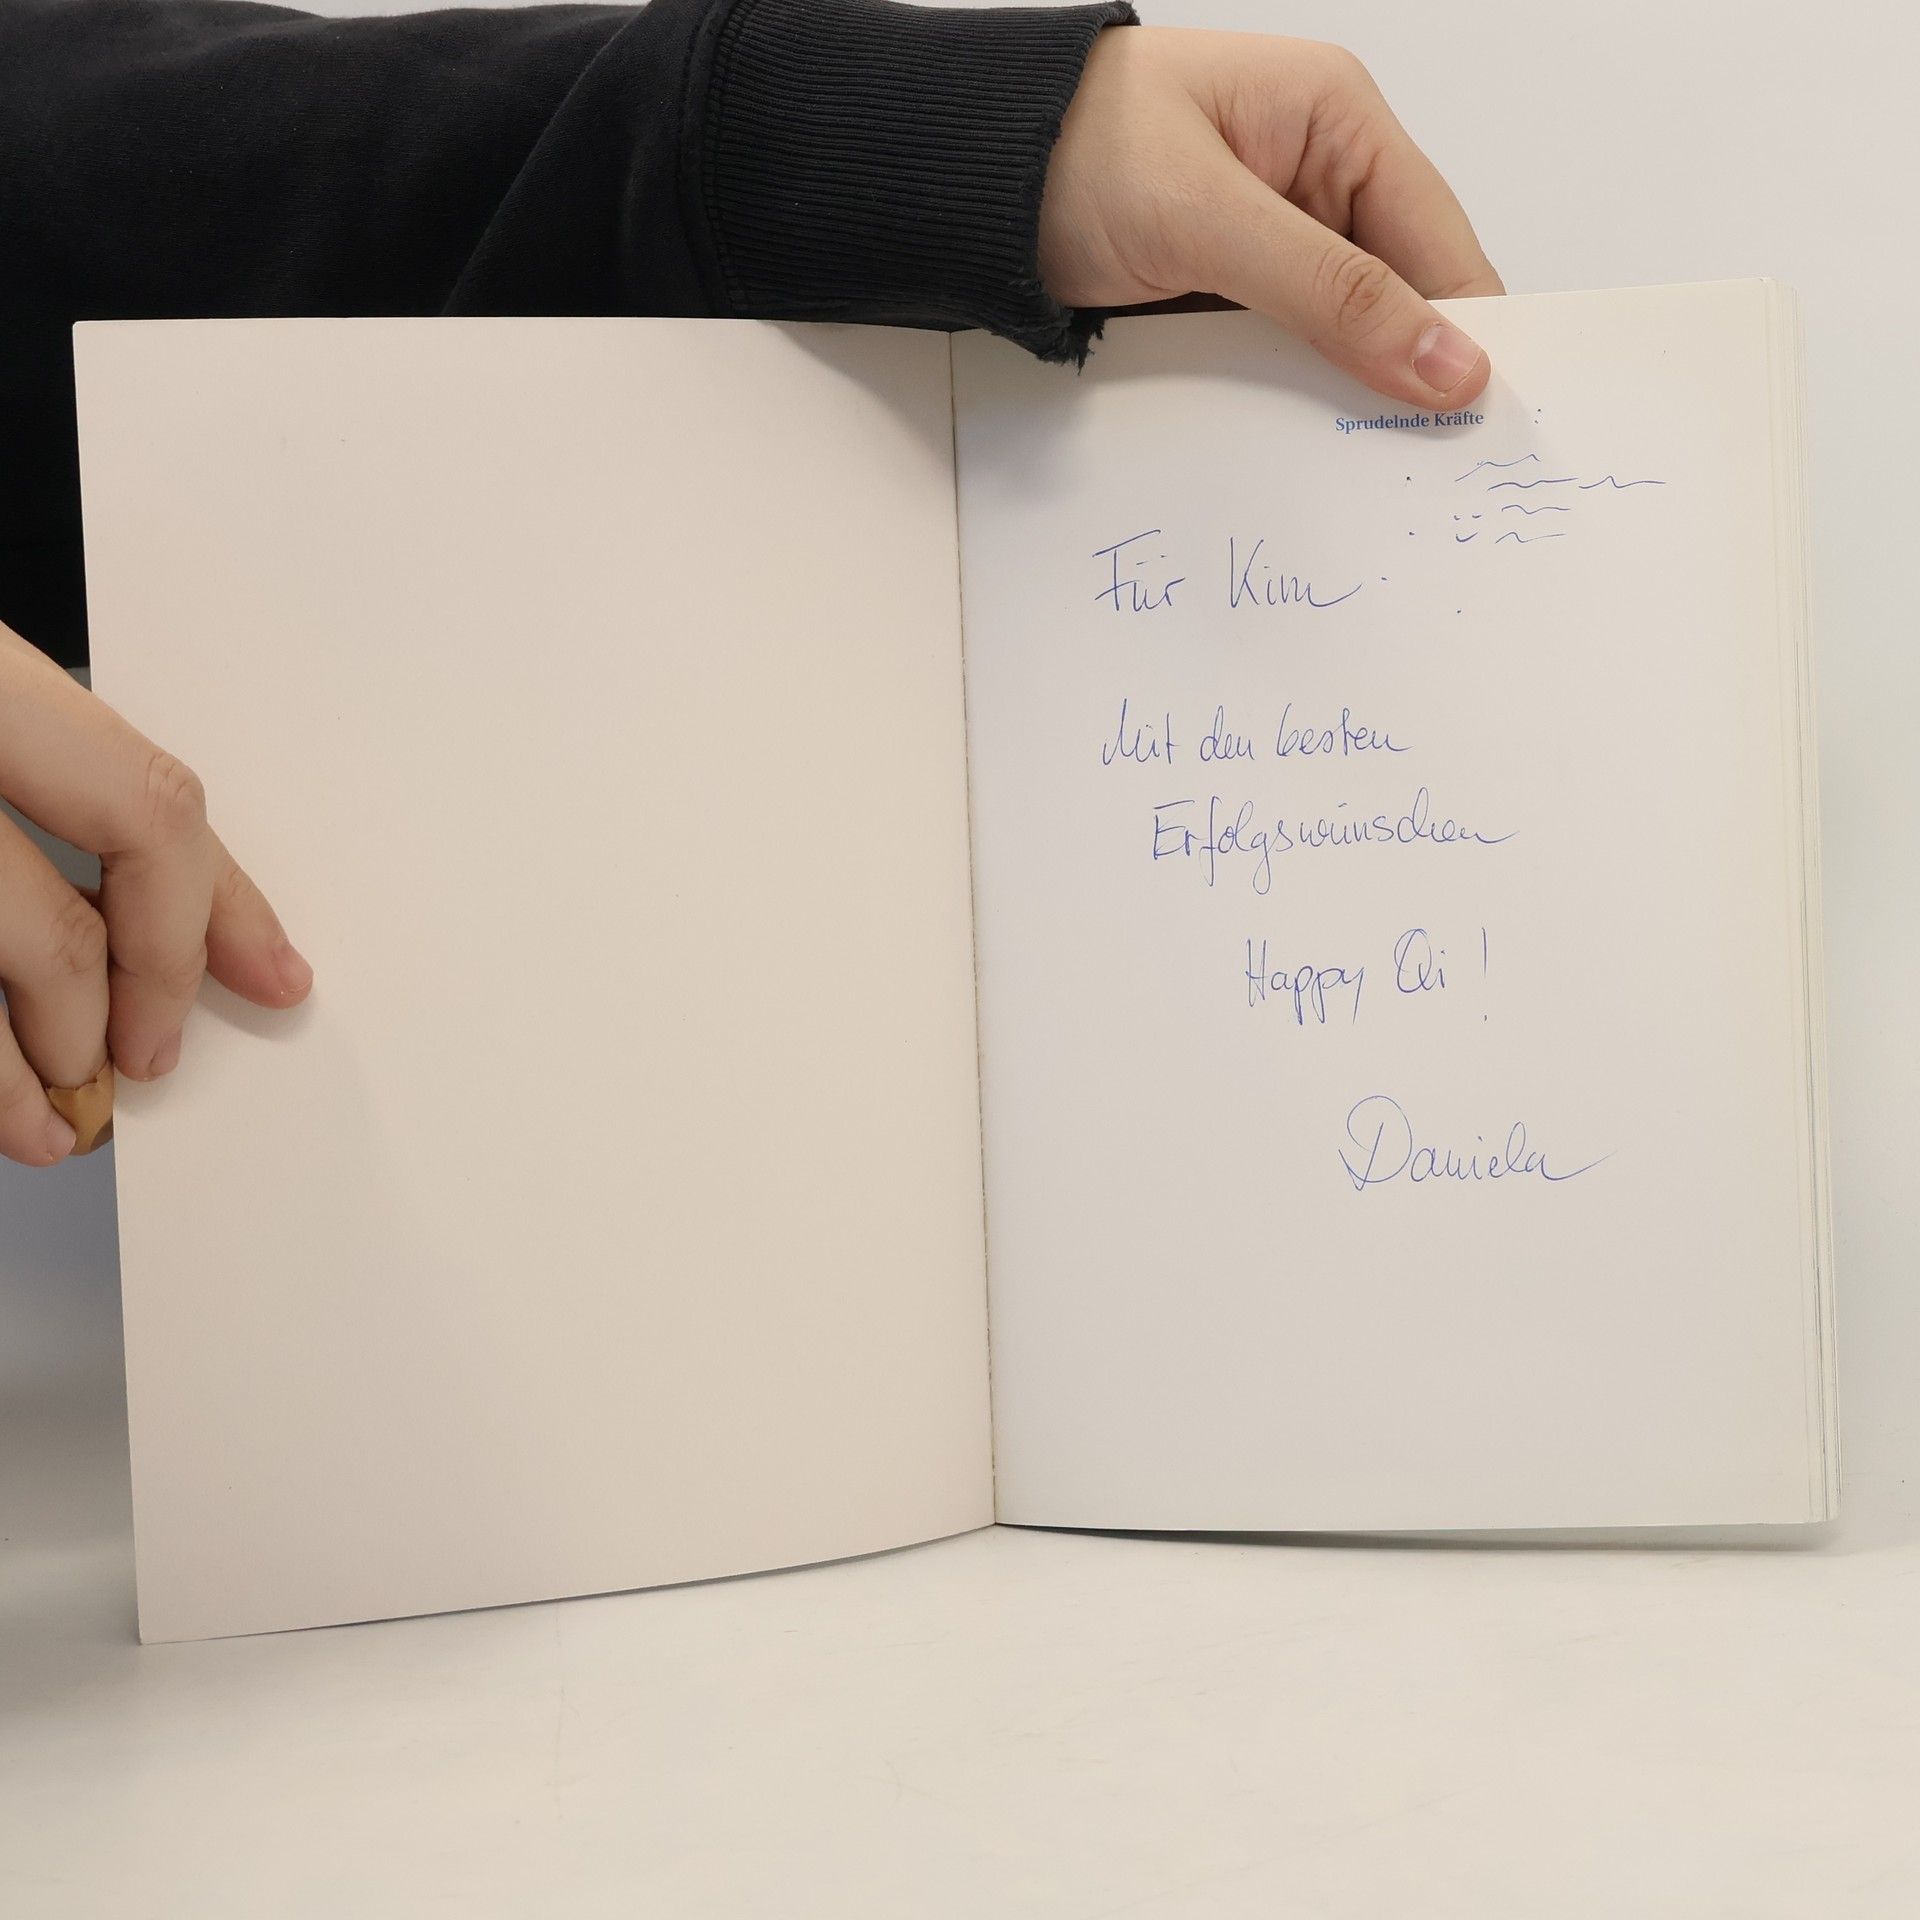 Sprudelnde Kräfte
Für Kim
Mit den besten
Erfolgswünschen
Happy Qi !
Daniela